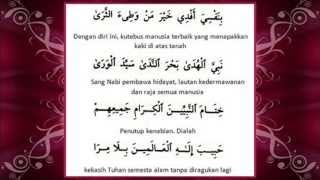 بِنَفْسِي أَفْدِي خَيْرَ مَنْ وَطِىءَ الثَّرَىٰ
Dengan diri ini, kutebus manusia terbaik yang menapakkan
kaki di atas tanah
نَبِيَّ الْهُدَىٰ بَحْرَ النَّدَىٰ سَيِّدَ الْوَرَىٰ
Sang Nabi pembawa hidayat, lautan kedermawanan
dan raja semua manusia
خِتَامَ النَّبِيِّينَ الْكِرَامِ جَمِيعِهِمْ
Penutup kenabian. Dialah
حَبِيبَ إِلَـٰهِ الْعَالَمِينَ بِلَا مِرَا
kekasih Tuhan semesta alam tanpa diragukan lagi